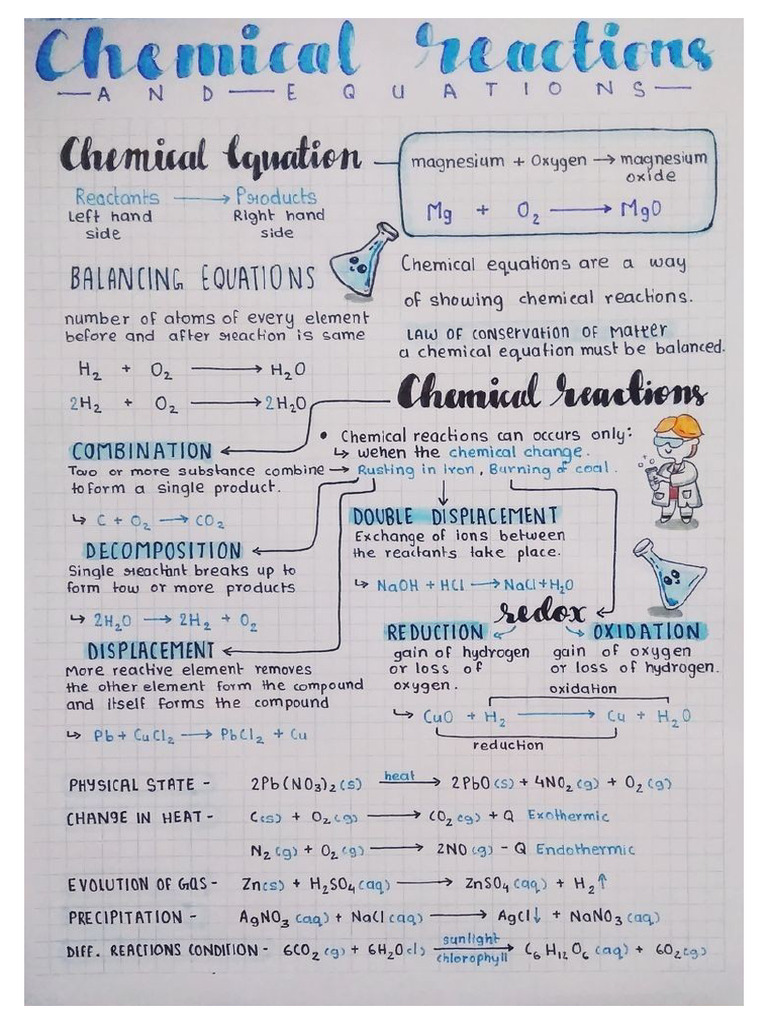 Chemical reactions
— A N D — E Q U A T I O N S —
Chemical Equation
magnesium + Oxygen → magnesium
oxide
Mg + O₂ → MgO
Reactants → Products
Left hand Right hand
side side
BALANCING EQUATIONS
number of atoms of every element
before and after reaction is same
H₂ + O₂ → H₂O
2H₂ + O₂ → 2H₂O
Chemical equations are a way
of showing chemical reactions.
LAW OF CONSERVATION OF MATTER
a chemical equation must be balanced.
Chemical reactions
• Chemical reactions can occurs only:
↳ wehen the chemical change.
→ Rusting in iron, Burning of coal.
COMBINATION
Two or more substance combine
to form a single product.
↳ C + O₂ → CO₂
DECOMPOSITION
Single reactant breaks up to
form tow or more products
↳ 2H₂O → 2H₂ + O₂
DISPLACEMENT
More reactive element removes
the other element form the compound
and itself forms the compound
↳ Pb + CuCl₂ → PbCl₂ + Cu
DOUBLE DISPLACEMENT
Exchange of ions between
the reactants take place.
↳ NaOH + HCl → NaCl + H₂O
redox
REDUCTION
gain of hydrogen
or loss of
oxygen.
OXIDATION
gain of oxygen
or loss of hydrogen.
oxidation
↳ CuO + H₂ → Cu + H₂O
reduction
PHYSICAL STATE - 2Pb(NO₃)₂(s) heat→ 2PbO(s) + 4NO₂(g) + O₂(g)
CHANGE IN HEAT - C(s) + O₂(g) → CO₂(g) + Q Exothermic
N₂(g) + O₂(g) → 2NO(g) - Q Endothermic
EVOLUTION OF GAS - Zn(s) + H₂SO₄(aq) → ZnSO₄(aq) + H₂↑
PRECIPITATION - AgNO₃(aq) + NaCl(aq) → AgCl↓ + NaNO₃(aq)
DIFF. REACTIONS CONDITION - 6CO₂(g) + 6H₂O(l) sunlight→ chlorophyll C₆H₁₂O₆(aq) + 6O₂(g)